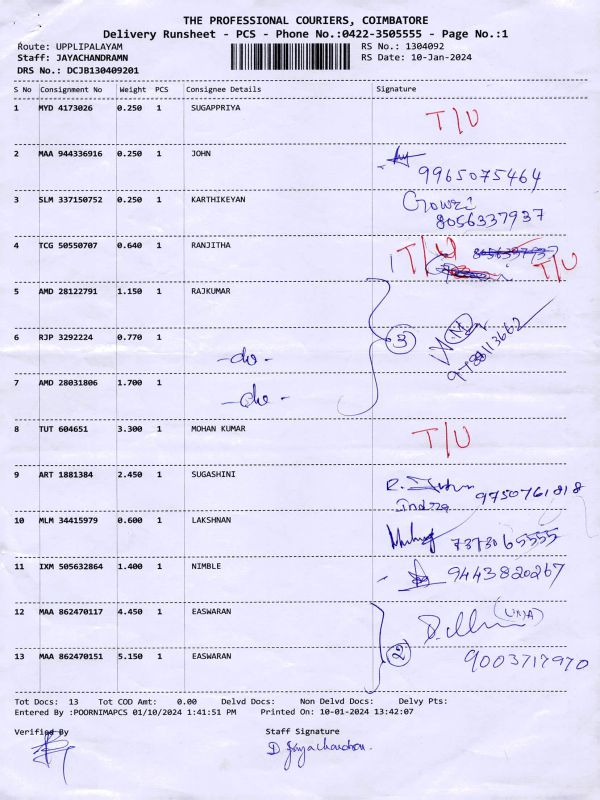 THE PROFESSIONAL COURIERS, COIMBATORE
Delivery Runsheet - PCS - Phone No.:0422-3505555 - Page No.:1
Route: UPPLIPALAYAM RS No.: 1304092
Staff: JAYACHANDRAMN RS Date: 10-Jan-2024
DRS No.: DCJB130409201
S No Consignment No Weight PCS Consignee Details Signature
1 MYD 4173026 0.250 1 SUGAPPRIYA T/U
2 MAA 944336916 0.250 1 JOHN
9965075464
3 SLM 337150752 0.250 1 KARTHIKEYAN Gowri
8056337937
4 TCG 50550707 0.640 1 RANJITHA T/U 8056337937 T/U
5 AMD 28122791 1.150 1 RAJKUMAR
6 RJP 3292224 0.770 1 -do- 3
7 AMD 28031806 1.700 1 -do-
8 TUT 604651 3.300 1 MOHAN KUMAR T/U
9 ART 1881384 2.450 1 SUGASHINI 9750761818
Indra
10 MLM 34415979 0.600 1 LAKSHNAN 7373065555
11 IXM 505632864 1.400 1 NIMBLE 9443820267
12 MAA 862470117 4.450 1 EASWARAN
2
13 MAA 862470151 5.150 1 EASWARAN 9003717970
Tot Docs: 13 Tot COD Amt: 0.00 Delvd Docs: Non Delvd Docs: Delvy Pts:
Entered By :POORNIMAPCS 01/10/2024 1:41:51 PM Printed On: 10-01-2024 13:42:07
Verified By Staff Signature
D Jayachandran.